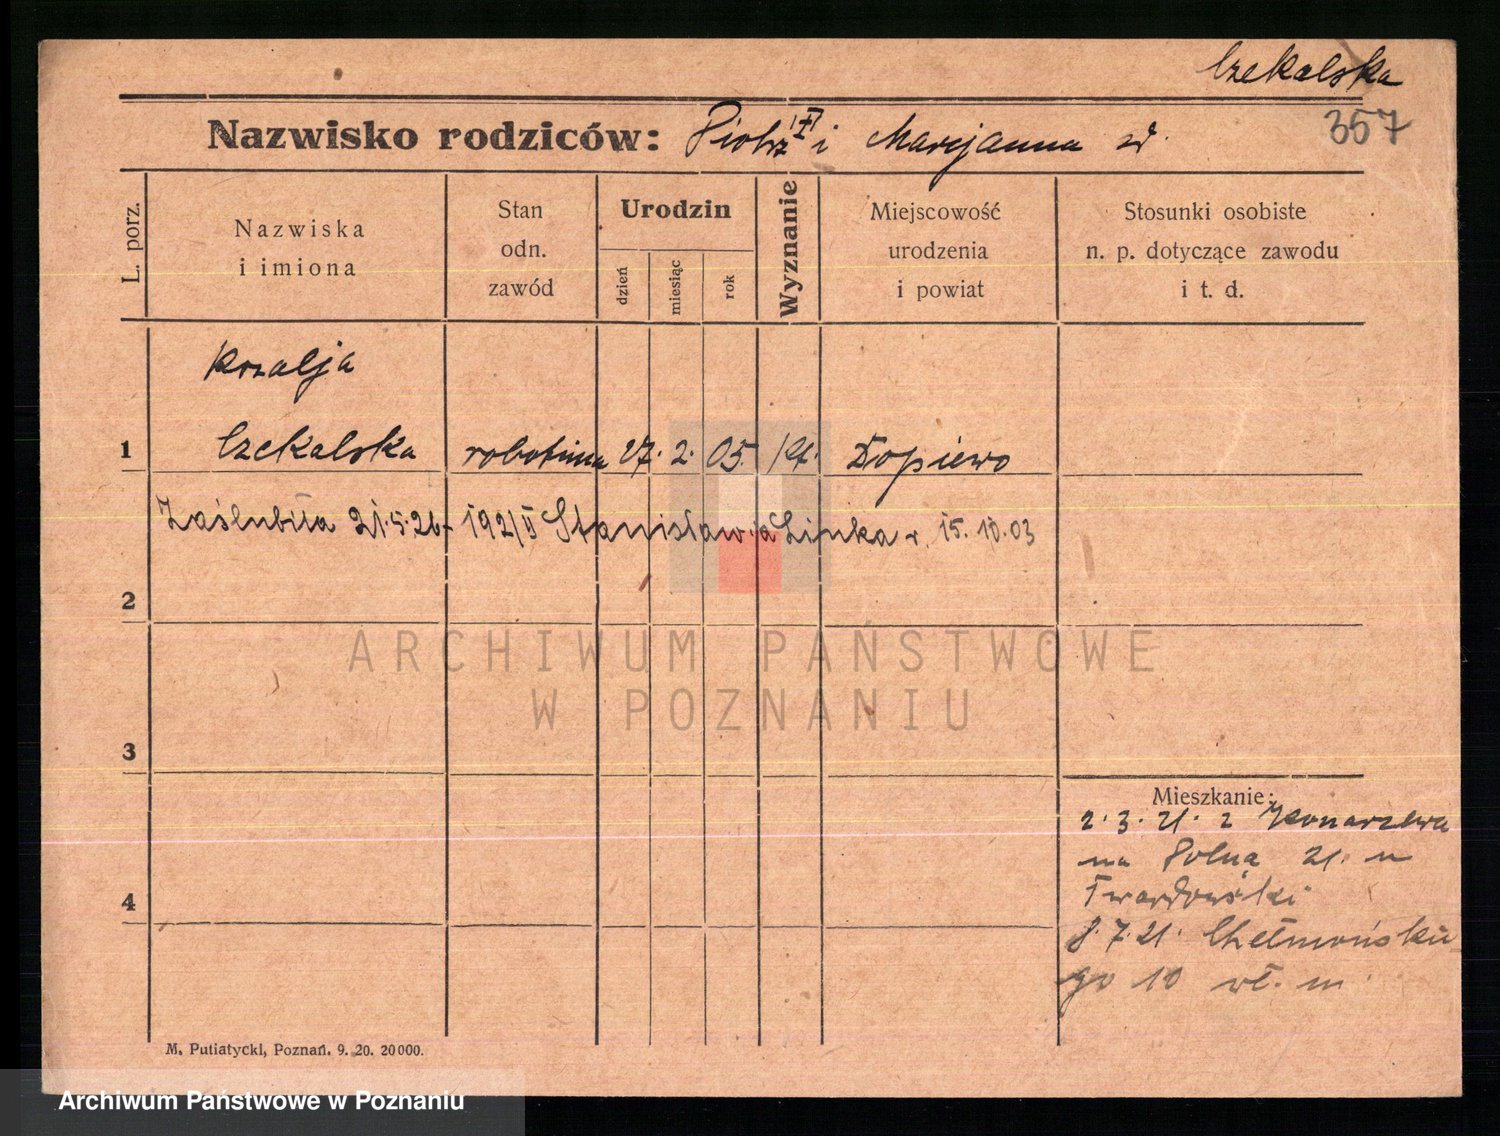 Czekalska
357
Nazwisko rodziców: Piotr i Marcjanna
L. porz.
Nazwiska
i imiona
Stan
odn.
zawód
Urodzin
dzień
miesiąc
rok
Wyznanie
Miejscowość
urodzenia
i powiat
Stosunki osobiste
n. p. dotyczące zawodu
i t. d.
Rozalja
1 Czekalska robotnica 27. 2. 05. kt. Dopiewo
Zaślubiła 21.5.26 192/II Stanisława Linka r. 15. 10. 03
2
ARCHIWUM PAŃSTWOWE
W POZNANIU
3
Mieszkanie:
2.3.21. z Konarzewa
na Polną 21. u
Twardowski
4
8.7.21. Chełmońskie
go 10 wł. m.
M. Putiatycki, Poznań. 9. 20. 20000.
Archiwum Państwowe w Poznaniu